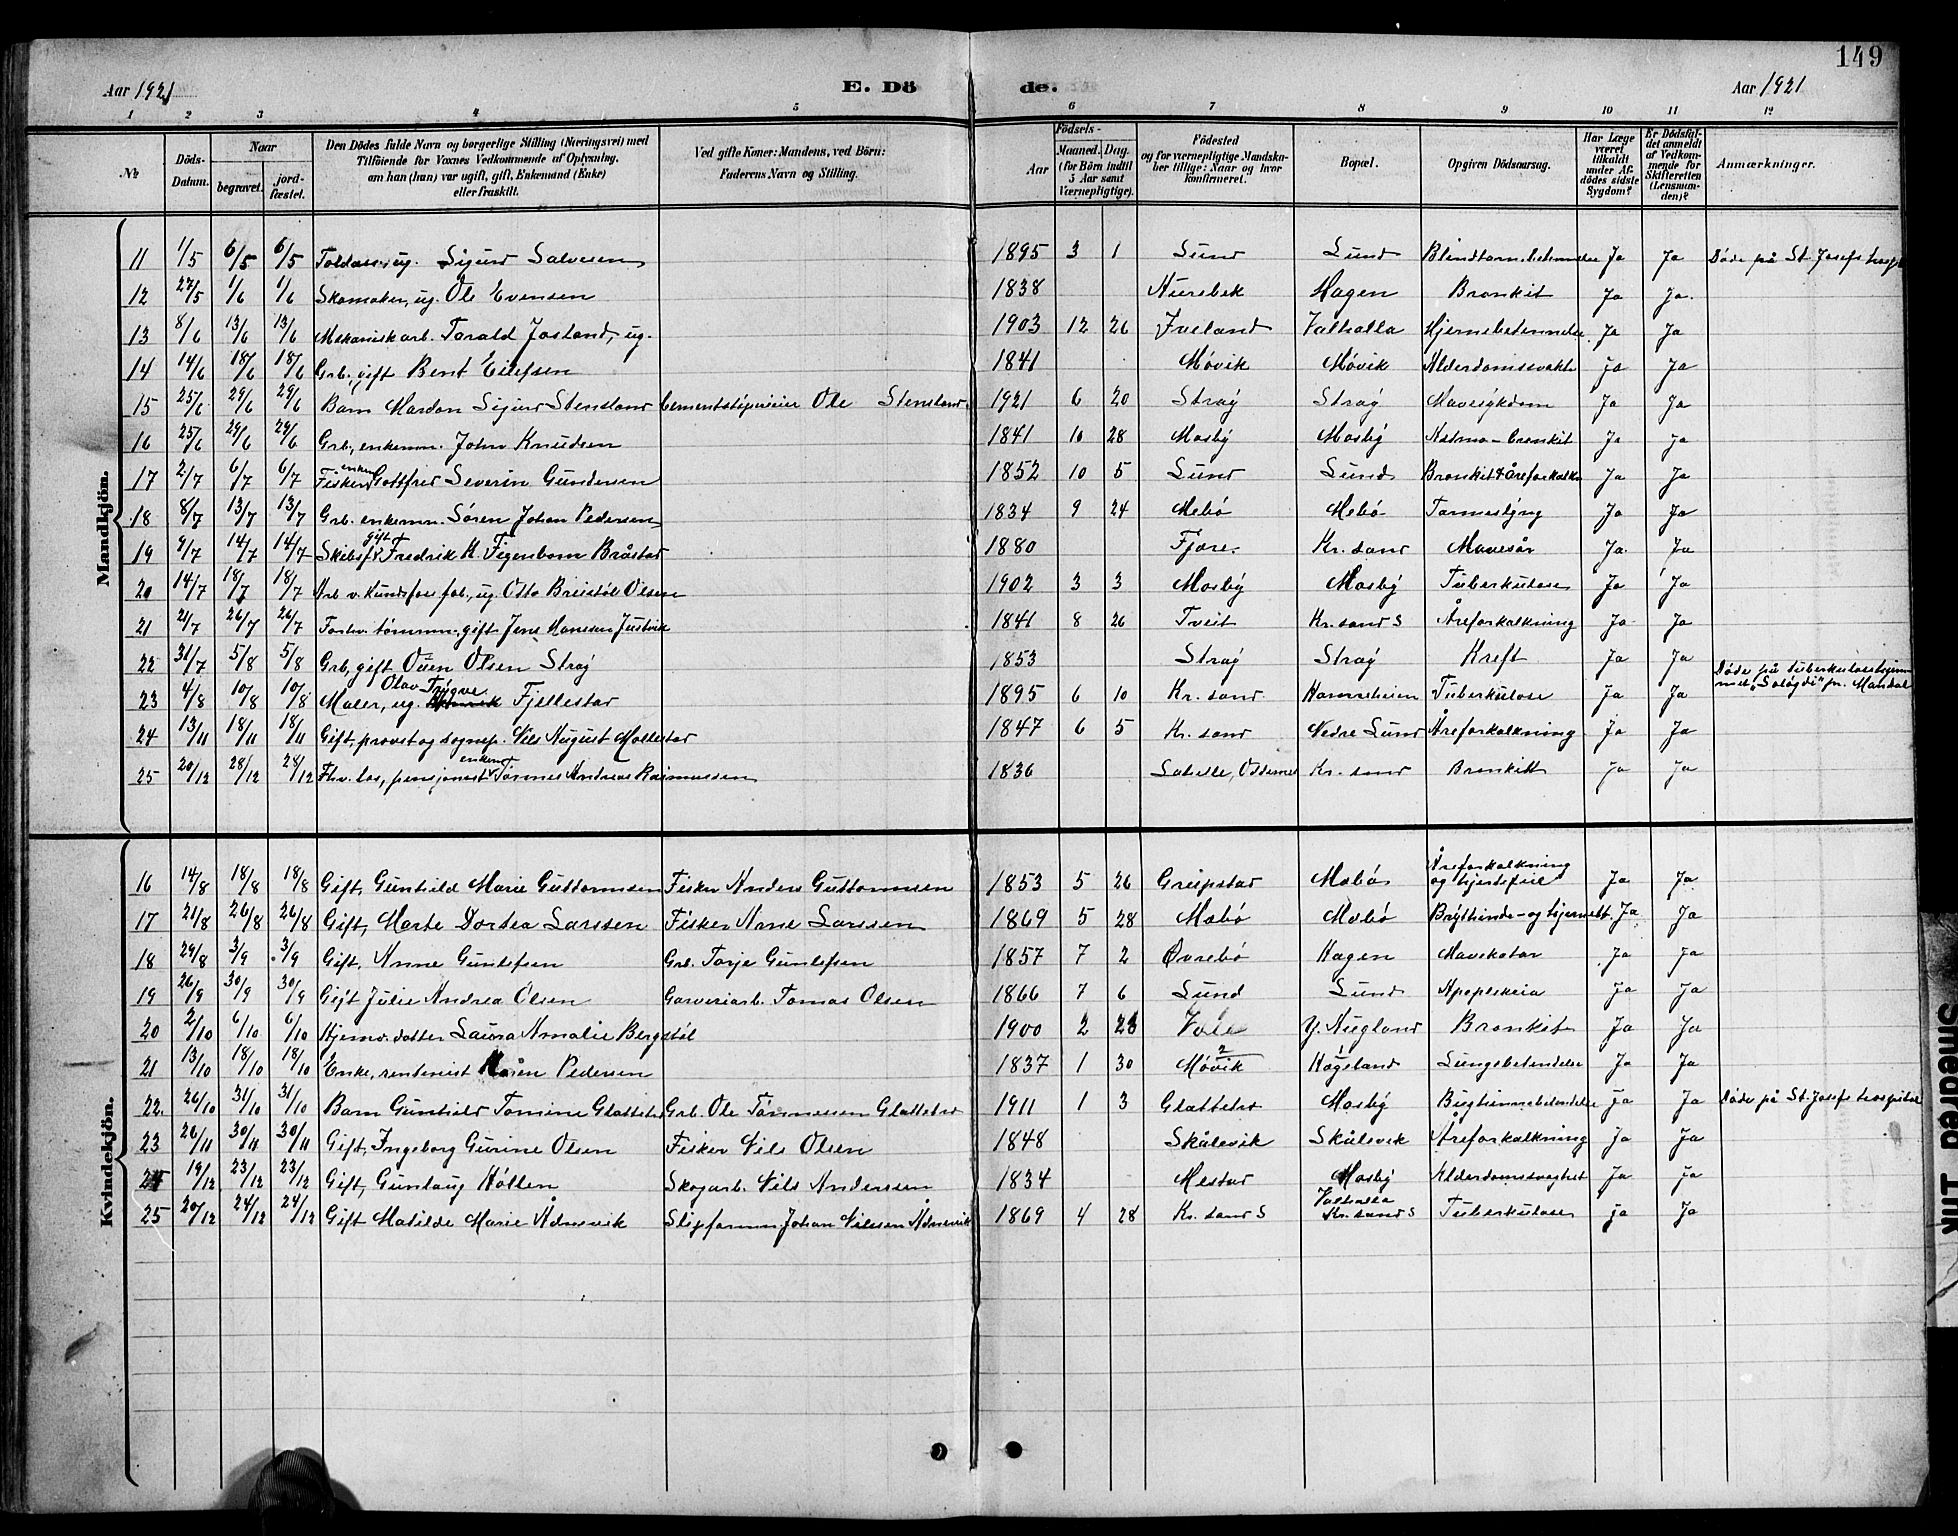 149
Aar 1921 E. Dö de. Aar 1921
1 2 3 4 5 6 7 8 9 10 11 12
No Döds-Datum. Naar begravet. jord-fæstet. Den Dödes fulde Navn og borgerlige Stilling (Næringsvei) med Tilföiende for Voxnes Vedkommende af Oplysning, om han (hun) var ugift, gift, Enkemand (Enke) eller fraskilt. Ved gifte Koner: Mandens, ved Börn: Faderens Navn og Stilling. Födsels- Aar Maaned. Dag. (for Börn indtil 5 Aar samt Værnepligtige). Födested og for værnepligtige Mandskaber tillige: Naar og hvor konfirmeret. Bopæl. Opgiven Dödsaarsag. Har Læge været tilkaldt under Afdödes sidste Sygdom? Er Dödsfaldet anmeldt af Vedkommende for Skifteretten (Lensmanden)? Anmærkninger.
Mandkjön.
11 1/5 6/5 6/5 ug. Sigurd Salvesen 1895 3 1 Lund Lund Ja Ja Døde på St. Josefs hosp
12 27/5 1/6 1/6 Skomaker, ug. Ole Evensen 1838 Aurebek Hagen Bronkit Ja Ja.
13 8/6 13/6 13/6 Mekanisk arb. Torald Jostand, ug. 1903 12 26 Iveland Valhalla Hjernebetennelse Ja Ja
14 14/6 18/6 18/6 Grb., gift Bent Eilefsen 1841 Møvik Møvik Alderdomssvakh Ja Ja
15 25/6 29/6 29/6 Barn Mardon Sigurd Stensland Cementstøperieier Ole Stensland 1921 6 20 Straj Straj Mavesykdom Ja Ja
16 25/6 29/6 29/6 Grb., enkem. John Knudsen 1841 10 28 Mosby Mosby Astma-bronkit Ja Ja
17 2/7 6/7 6/7 Fisker, enkem Gottfred Severin Gundersen 1852 10 5 Lund Lund Bronkit & Åreforkalkn Ja Ja
18 8/7 13/7 13/7 Grb. enkem. Søren Johan Pedersen 1834 9 24 Mebø Mebø Tarmeslyng Ja Ja
19 9/7 14/7 14/7 Skibsf. gift Fredrik K. Figenbom Bråstad 1880 Fjære. Kr. sand Mavesår Ja. Ja
20 14/7 18/7 18/7 Arb. v. Hundsfos fab., ug. Otto Breistøl Olsen 1902 3 3 Mosby Mosby Tuberkulose Ja Ja
21 21/7 26/7 26/7 Forhv. tømmm. gift Jens Hansen Justvik 1841 8 26 Tveit Kr. sand S Åreforkalkning Ja Ja
22 31/7 5/8 5/8 Grb, gift Ouen Olsen Straj 1853 Straj Straj Kreft Ja Ja
23 4/8 10/8 10/8 Maler, ug. Olav Trygve Fjellestad 1895 6 10 Kr. sand Hamreheien Tuberkulose Ja Ja Døde på Tuberkulosehjemmet "Soløgdi" pr. Mandal
24 13/11 18/11 18/11 Gift, provst og sognep. Nils August Mollestad 1847 6 5 Kr. sand Nedre Lund Åreforkalkning Ja Ja
25 20/12 28/12 28/12 Fhv. los, pensjonest enkem Tønnes Andreas Rasmussen 1836 Oddernes Kr. sand Bronkitt Ja Ja
Kvindekjön.
16 14/8 18/8 18/8 Gift, Gunhild Marie Guttormsen Fisker Anders Guttormsen 1853 5 26 Greipstad Mebø Åreforkalkning og hjertefeil Ja Ja
17 21/8 26/8 26/8 Gift, Marte Dortea Larssen Fisker Arne Larssen 1869 5 28 Mebø Mebø Brysthinde- og hjernebt. Ja Ja
18 29/8 3/9 3/9 Gift, Anne Gunlefsen Grb. Torje Gunlefsen 1857 7 2 Øvrebø Hagen Mavekatar Ja Ja
19 26/9 30/9 30/9 Gift Julie Andrea Olsen Garveriarb. Tomas Olsen 1866 7 6 Lund Lund Apopleksia Ja Ja
20 2/10 6/10 6/10 Hjemv. datter Laura Amalie Bergstøl 1900 2 Y. Augland Bronkit Ja Ja
21 13/10 18/10 18/10 Enke, rentenist Maren Pedersen 1837 1 30 Møvik Kogsland Lungebetendelse Ja Ja
22. 26/10 31/10 31/10 Barn Gunhild Tomine Glattetre Grb. Ole Tønnessen Glattetre 1911 1 3 Glattetre Mosby Bughinnebetendelse Ja Ja Døde på St. Josefs hospital
23 26/11 30/11 30/11 Gift, Ingeborg Gurine Olsen Fisker Nils Olsen 1848 Skålevik Skålevik Åreforkalkning Ja Ja
24 19/12 23/12 23/12 Gift, Gunlaug Hollen Skogarb. Nils Anderssen 1834 Mestad Mosby Alderdomssvaghet Ja Ja
25 20/12 24/12 24/12 Gift Matilde Marie Ådnevik Slipformm Johan Nilssen Ådnevik 1869 4 28 Kr. sand S Valhalla Kr. sand S Tuberkulose Ja Ja